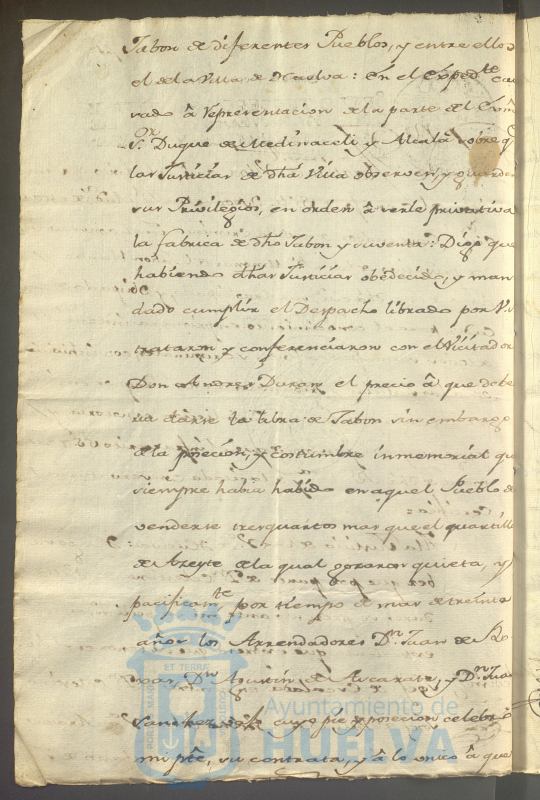 Jabon de diferentes Pueblos, y entre ellos
el de la Villa de Huelva: En el Expedte cau
sado â Representacion de la parte del Exmo
Sor Duque de Medinaceli y Alcalá sobre q
las Justicias de dha Villa observen, y guarden
sus Privilegios, en orden â serle privativa
la fabrica de dho Jabon y su venta: Digo que
habiendo dhas Justicias obedecido, y man
dado cumplir el Despacho librado por V.
trataron y conferenciaron con el Visitador
Don Andres Duran el precio â que debe
ria darse la libra de Jabon sin embargo
de la posecion, y costumbre inmemorial que
siempre habia habido en aquel Pueblo de
venderse tres quartos mas que el quartillo
de Azeyte de la qual gozaron quieta, y
pacificamte por tiempo de mas de treinta
años los Arrendadores Dn Juan de
Dn Agustin de Aucarate, y Dn Jua
Sanchez cuyo pie y posecion celebró
mi pte, su contrata, y â lo unico â que
AYUNTAMIENTO de
HUELVA
PORTUS MARIS
ET TERRAE